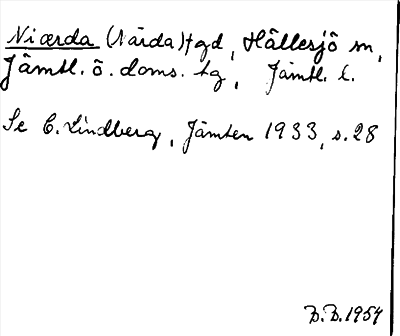 Niærda (Närda) fgd, Hällesjö sn,
Jämtl. ö. doms. tg, Jämtl. l.
Se C. Lindberg, Jämten 1933, s. 28
B.B. 1954